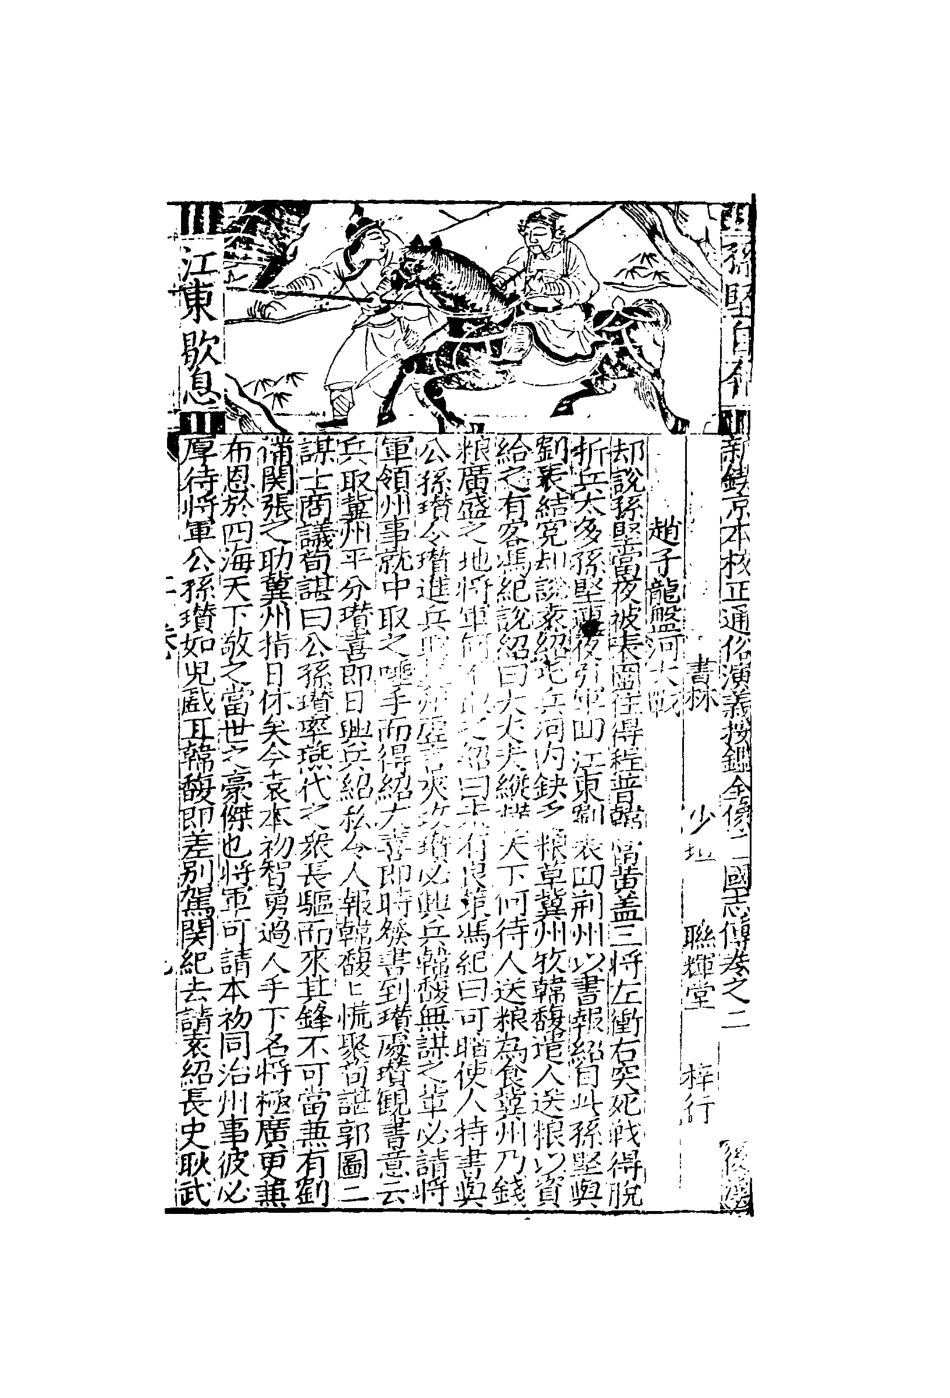 孫堅自奔
江東歇息
新鋟京本校正通俗演義按鑑全像三國志傳卷之二
書林 聯輝堂 梓行
趙子龍盤河大戰
却說孫堅當夜被表圍住得程普韓當黃盖三將左衝右突死戰得脫
折兵太多孫堅連夜引軍回江東劉表回荊州以書報紹自此孫堅與
劉表結寃却說袁紹屯兵河内缺少粮草冀州牧韓馥遣人送粮以資
給之有客馮紀說紹曰大丈夫縱横天下何待人送粮為食冀州乃錢
粮廣盛之地將軍何不取之紹曰未有良策馮紀曰可暗使人持書與
公孫瓚令瓚進兵取冀州虛言夾攻瓚必興兵韓馥無謀之輩必請將
軍領州事就中取之唾手而得紹大喜即時發書到瓚處瓚観書意云
兵取冀州平分瓚喜即日興兵紹私令人報韓馥〻慌聚荀諶郭圖二
謀士商議荀諶曰公孫瓚率燕代之衆長驅而來其鋒不可當兼有劉
俻関張之助冀州指日休矣今袁本初智勇過人手下名將極廣更兼
布恩於四海天下敬之當世之豪傑也將軍可請本初同治州事彼必
厚待將軍公孫瓚如兒戯耳韓馥即差別駕関紀去請袁紹長史耿武
二卷